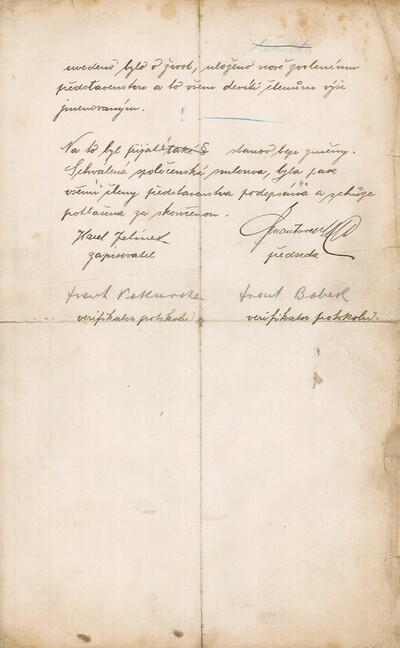 uvedeno bylo v život, uloženo nově zvolenému
představenstvu a to všem devíti členům výše
jmenovaným.
Na to byl přijat také § stanov beze změny.
Schválená společenská smlouva byla pak
všemi členy představenstva podepsána a schůze
prohlášena za skončenou.
Karel Jelínek
zapisovatel
předseda
Frant Bobek
verifikator protokolu.
verifikator protokolu.